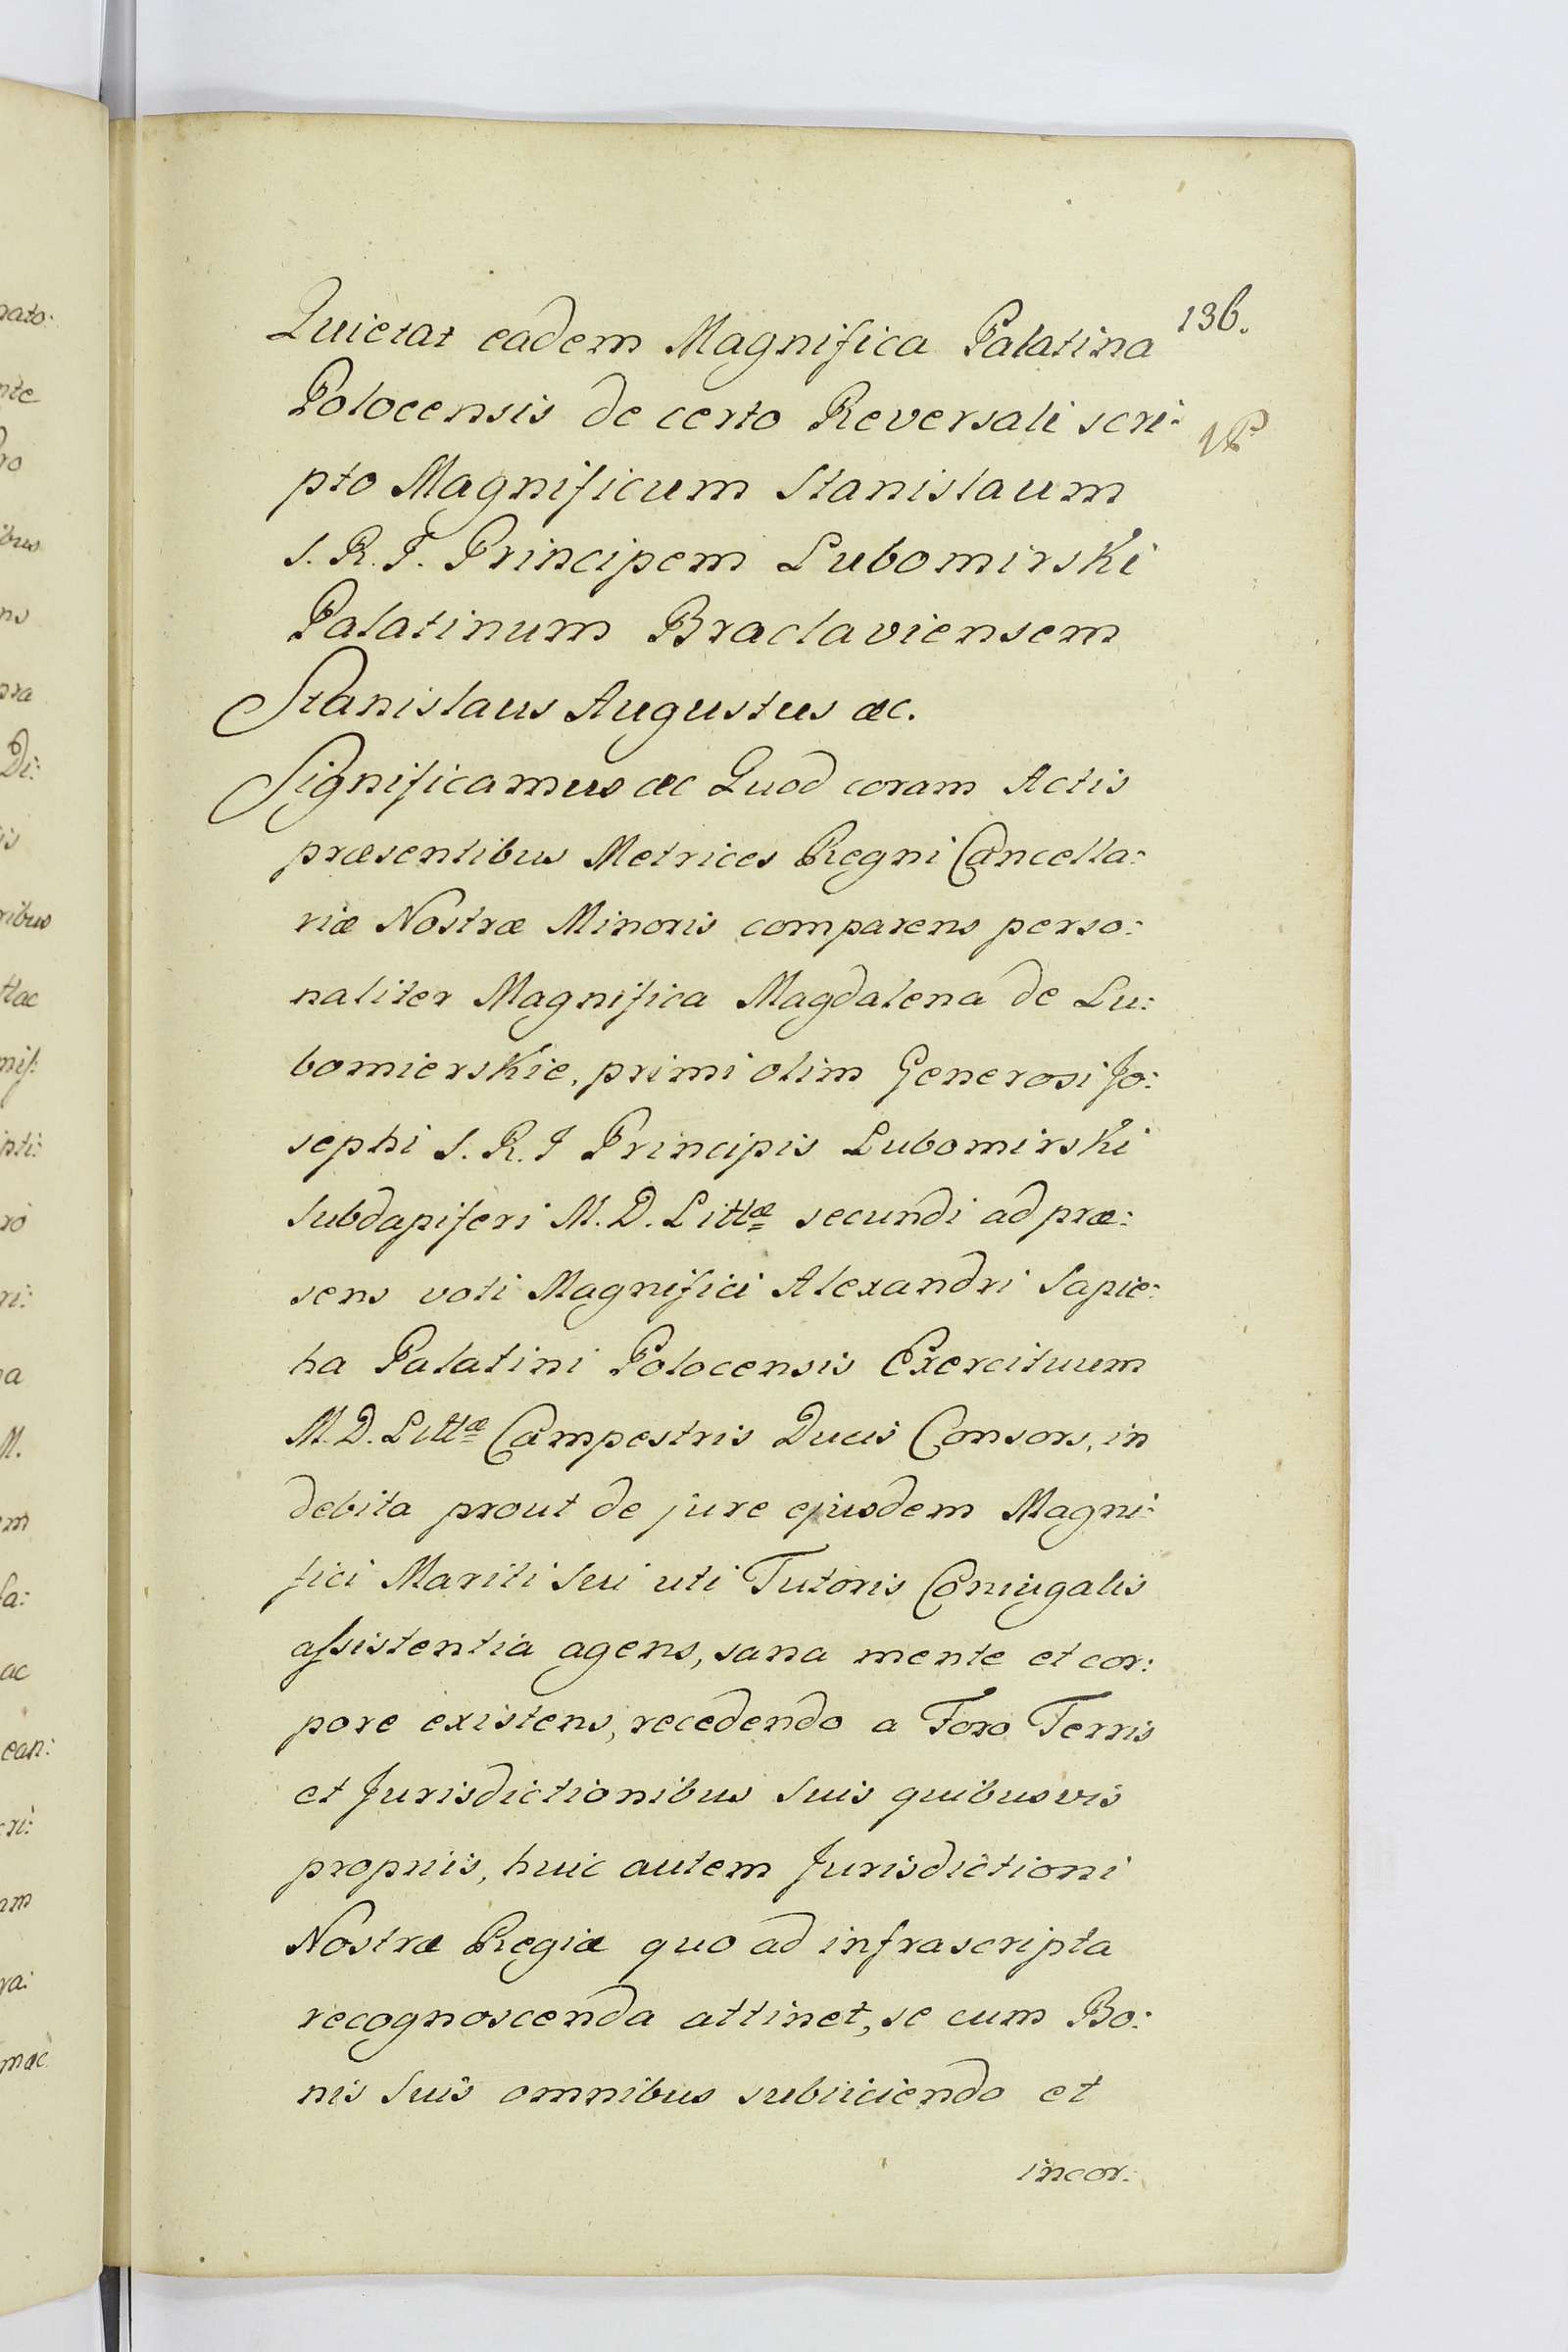 Quietat eadem Magnifica Palatina 136.
Polocensis de certo Reversali scri:
pto Magnificum Stanislaum
S. R. I. Principem Lubomirski
Palatinum Braclaviensem
Stanislaus Augustus &c.
Significamus &c Quod coram Actis
præsentibus Metrices Regni Cancella:
riæ Nostræ Minoris comparens perso:
naliter Magnifica Magdalena de Lu:
bomierskie, primi olim Generosi Jo:
sephi S. R. I Principis Lubomirski
Subdapiferi M. D. Littæ secundi ad præ:
sens voti Magnifici Alexandri Sapie:
ha Palatini Polocensis Exercituum
M. D. Littæ Campestris Ducis Consors, in
debita prout de jure ejusdem Magni:
fici Mariti Sui uti Tutoris Coniugalis
assistentia agens, sana mente et cor:
pore existens, recedendo a Foro Terris
et Jurisdictionibus Suis quibusvis
propriis, huic autem Jurisdictioni
Nostræ Regiæ quo ad infrascripta
recognoscenda attinet, se cum Bo:
nis Suis omnibus subiiciendo et
incor:
nato.
nte
ro
ibus
ns
ora
Di:
is
ribus
tac
mis:
pti:
ro
ri:
na
M.
em
sa:
ac
ean:
cri:
am
ra:
mæ